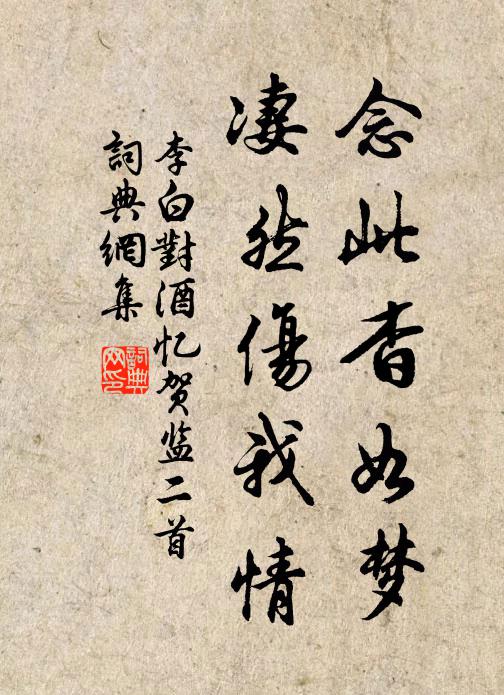 念此杳如梦
凄然傷我情
李白對酒忆贺监二首
詞典網集
詞典网印